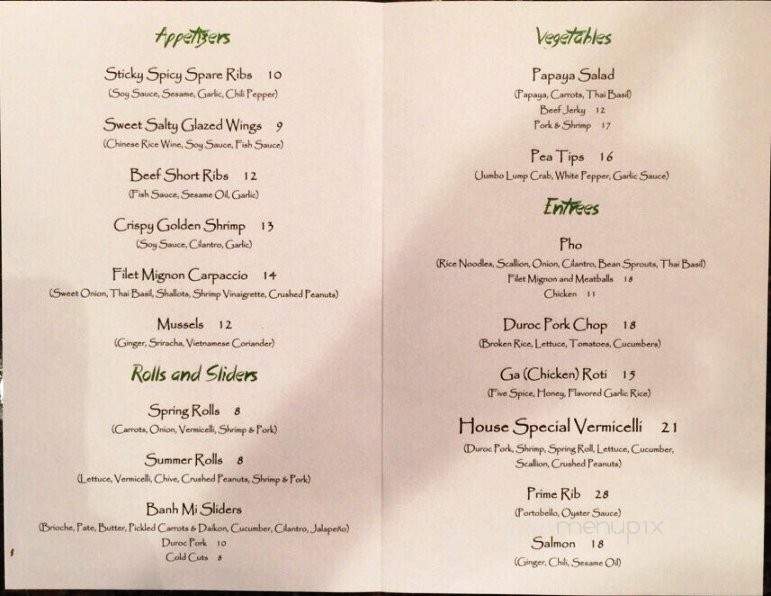 Appetizers
Sticky Spicy Spare Ribs 10
(Soy Sauce, Sesame, Garlic, Chili Pepper)
Sweet Salty Glazed Wings 9
(Chinese Rice Wine, Soy Sauce, Fish Sauce)
Beef Short Ribs 12
(Fish Sauce, Sesame Oil, Garlic)
Crispy Golden Shrimp 13
(Soy Sauce, Cilantro, Garlic)
Filet Mignon Carpaccio 14
(Sweet Onion, Thai Basil, Shallots, Shrimp Vinaigrette, Crushed Peanuts)
Mussels 12
(Ginger, Sriracha, Vietnamese Coriander)
Rolls and Sliders
Spring Rolls 8
(Carrots, Onion, Vermicelli, Shrimp & Pork)
Summer Rolls 8
(Lettuce, Vermicelli, Chive, Crushed Peanuts, Shrimp & Pork)
Banh Mi Sliders
(Brioche, Pate, Butter, Pickled Carrots & Daikon, Cucumber, Cilantro, Jalapeño)
Duroc Pork 10
Cold Cuts 8
Vegetables
Papaya Salad
(Papaya, Carrots, Thai Basil)
Beef Jerky 12
Pork & Shrimp 17
Pea Tips 16
(Jumbo Lump Crab, White Pepper, Garlic Sauce)
Entrees
Pho
(Rice Noodles, Scallion, Onion, Cilantro, Bean Sprouts, Thai Basil)
Filet Mignon and Meatballs 18
Chicken 11
Duroc Pork Chop 18
(Broken Rice, Lettuce, Tomatoes, Cucumbers)
Ga (Chicken) Roti 15
(Five Spice, Honey, Flavored Garlic Rice)
House Special Vermicelli 21
(Duroc Pork, Shrimp, Spring Roll, Lettuce, Cucumber,
Scallion, Crushed Peanuts)
Prime Rib 28
(Portobello, Oyster Sauce)
menupix
Salmon 18
(Ginger, Chili, Sesame Oil)